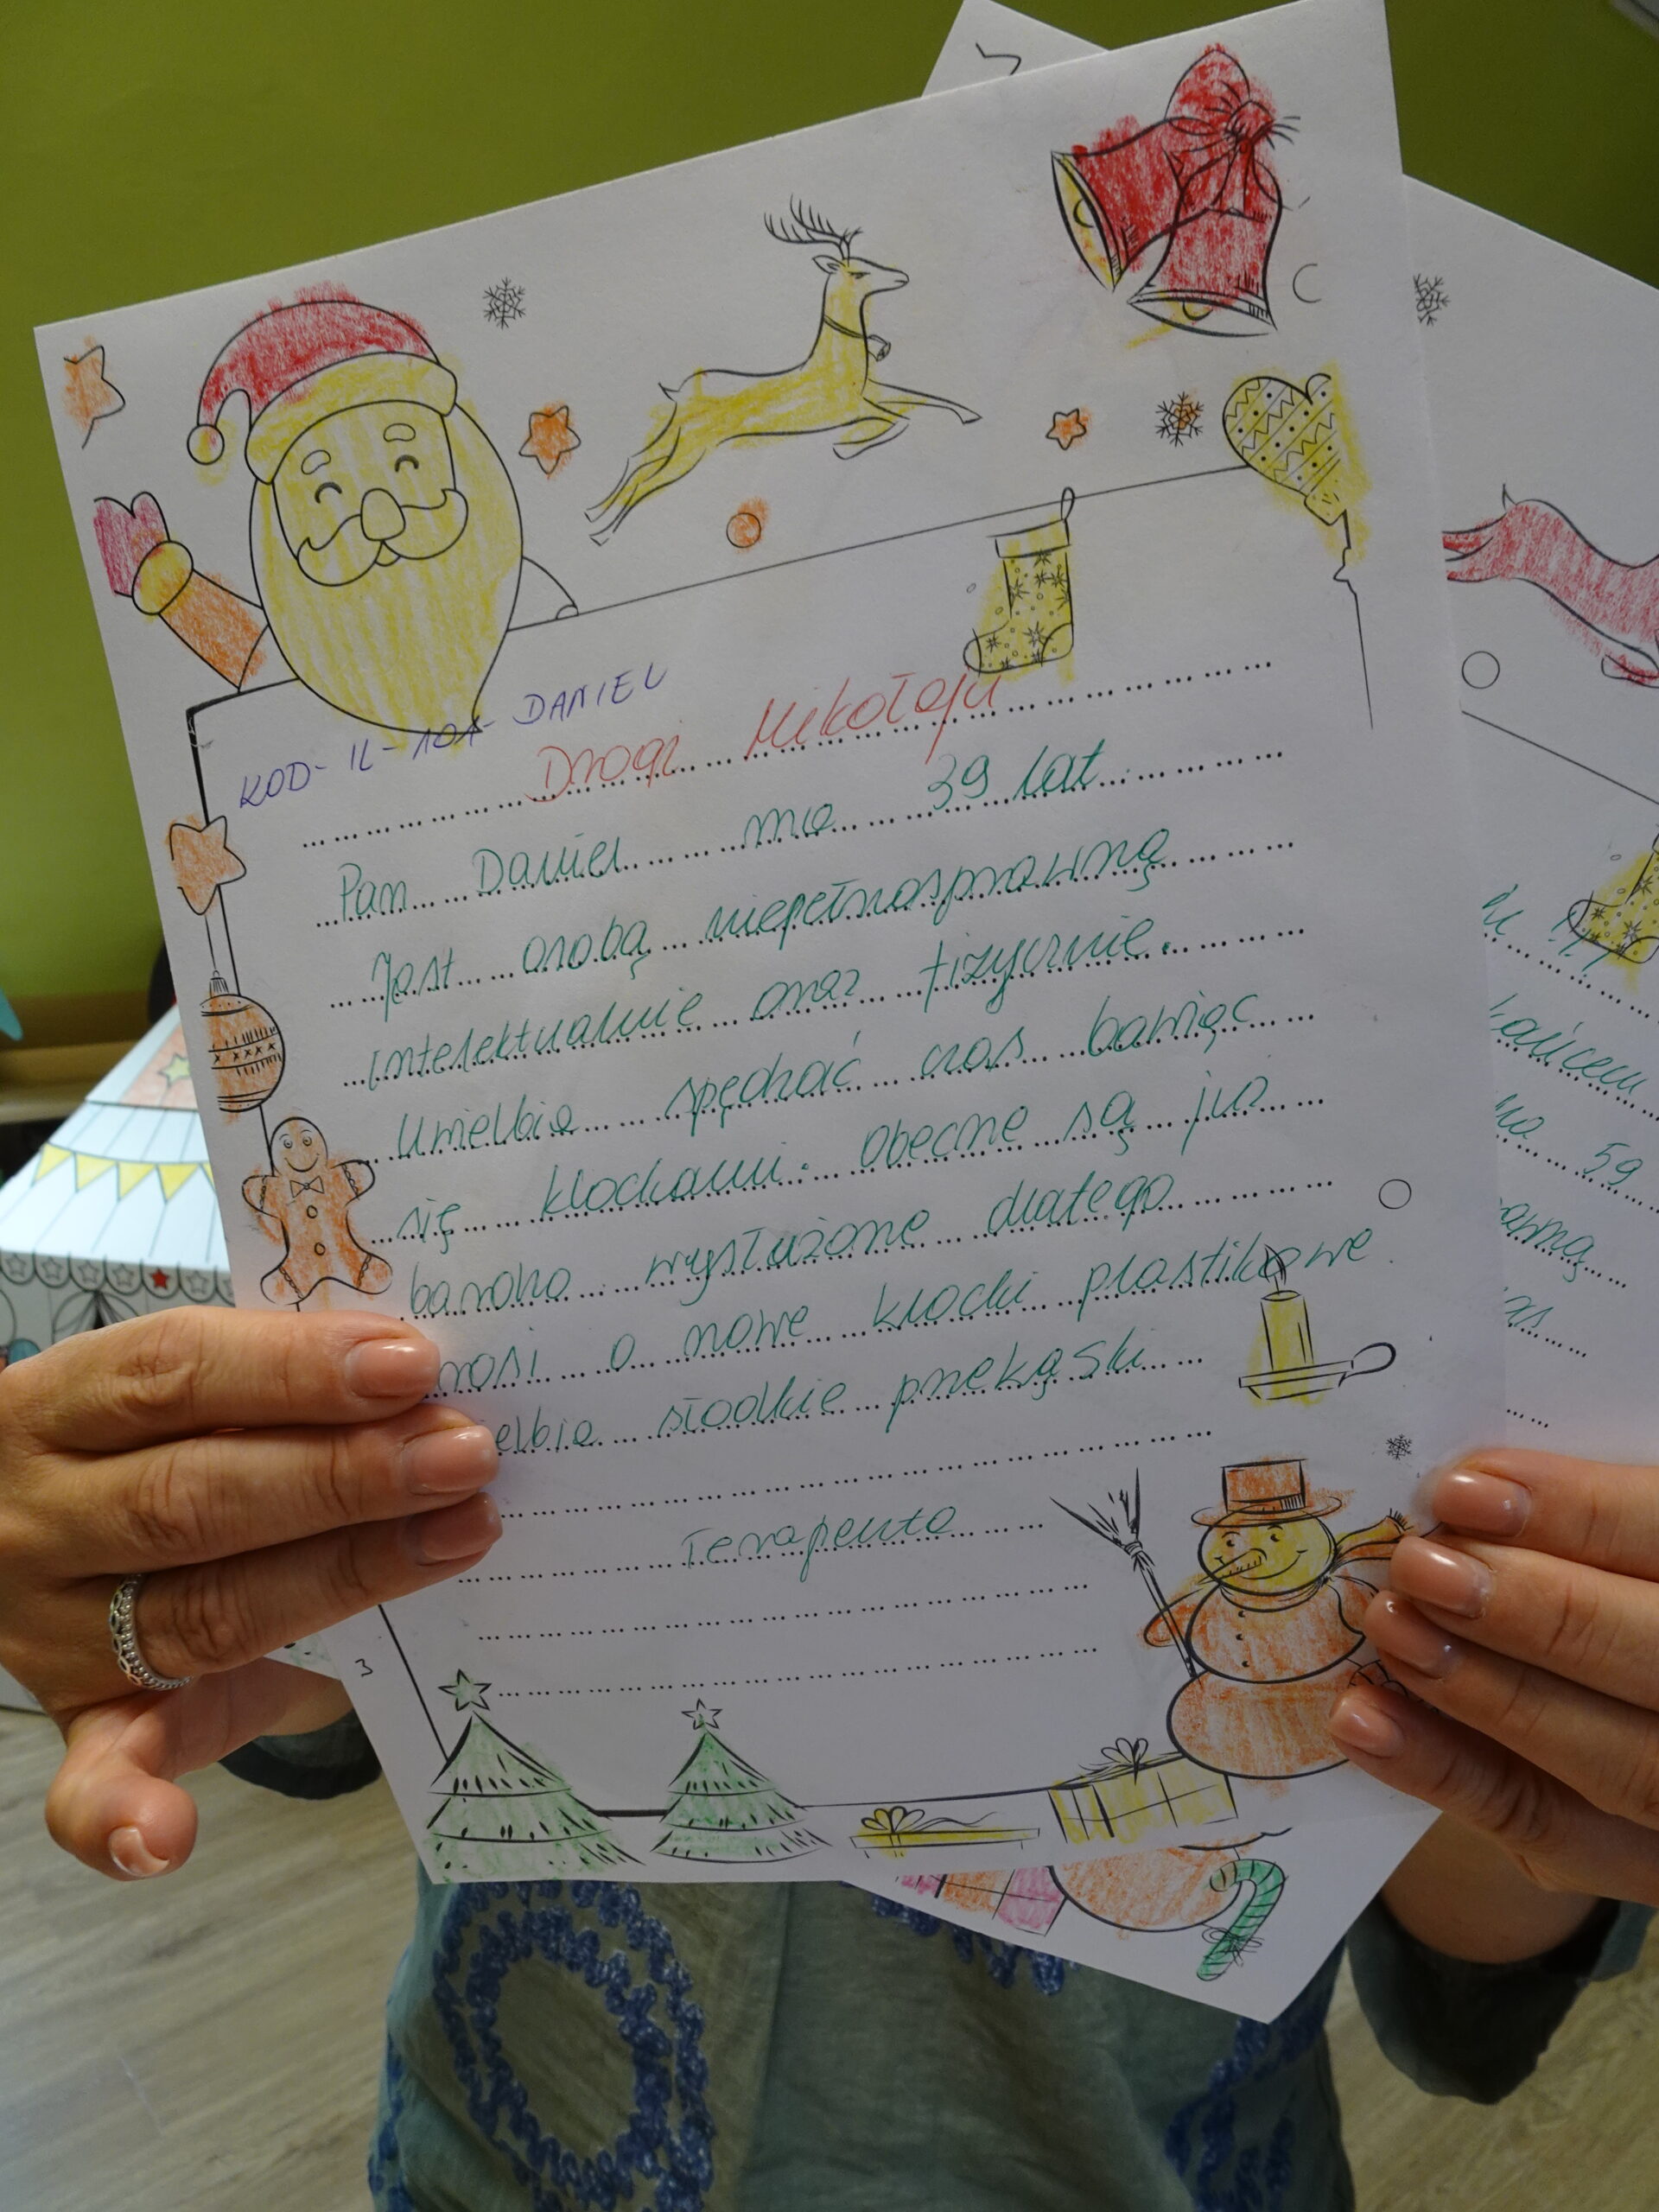 KOD-IL-101-DANIEL
Drogi Mikołaju
Pan Daniel ma 39 lat.
Jest osobą niepełnosprawną
intelektualnie oraz fizycznie.
Uwielbia spędzać czas bawiąc
się klockami. Obecne są już
bardzo wysłużone dlatego
rosi o nowe klocki plastikowe.
elbia słodkie przekąski
Terapeuta
3
59